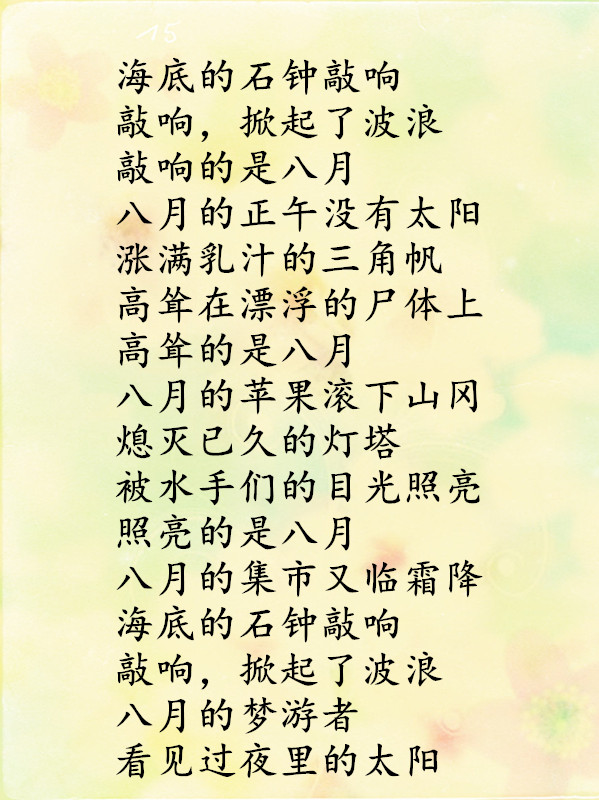 15
海底的石钟敲响
敲响，掀起了波浪
敲响的是八月
八月的正午没有太阳
涨满乳汁的三角帆
高耸在漂浮的尸体上
高耸的是八月
八月的苹果滚下山冈
熄灭已久的灯塔
被水手们的目光照亮
照亮的是八月
八月的集市又临霜降
海底的石钟敲响
敲响，掀起了波浪
八月的梦游者
看见过夜里的太阳